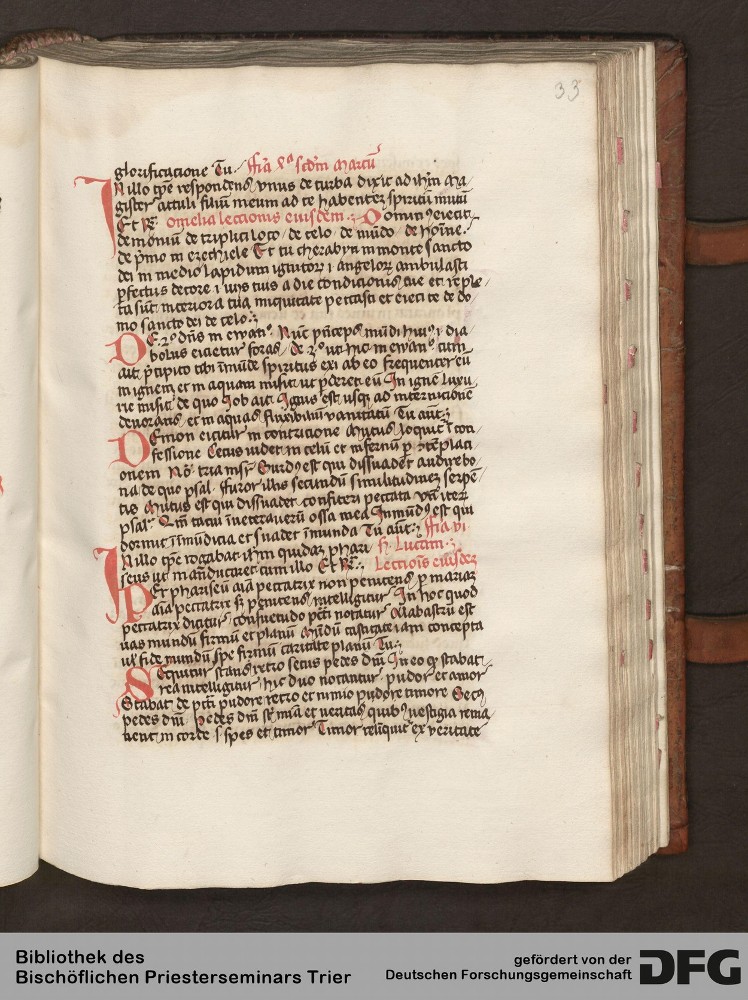 33
glorificatione Tu. ffia va scdm Marcu
In illo tpe respondens vnus de turba dixit ad ihm Ma
gister attuli filiu meum ad te habentez spiritu mutu
Et Re. Omelia lectionis eiusdem. Domin eiecit
demonium de triplici loco de celo de mudo de hoie.
de pmo in ezechiele Et tu cherubyn in monte sancto
dei in medio lapidum ignitor i angelor ambulasti
pfectus decore i vijs tuis a die conditionis tue et reple
ta sut interiora tua iniquitate peccasti et eieci te de do
mo sancto dei de celo
De 2o dns in ewan Nuc pnceps mudi hui i dia
bolus eicietur foras de 3o ut hic in ewan cum
ait ptipico tibi imude spiritus exi ab eo frequenter eu
in ignem et in aquam misit ut pderet eu In igne luxu
rie misit de quo Job ait Ignis est usq ad internicione
deuorans et in aquas fluxibiliu vanitatu Tu aut
Demon eicitur in contricione Mutus loquit i con
fessione Cecus uidet in celu et infernu p contemplati
onem No tria mist Surdus est qui dissuadet audire bo
na de quo psal ffuror illis secundu similitudinez serpe
tis Mutus est qui dissuadet confiteri peccata vn iteru
psal Qm tacui inueterauerut ossa mea Inmudus est qui
dormit i imudicia et suadet inmunda Tu aut ffia vi
In illo tpe rogabat ihm quidaz phari h Lucam
seus ut maducaret cum illo Et Re. Lectiois eiusdez
Per phariseu aia peccatrix non penitens p mariaz
aia peccatrix si penitens intelligitur In hoc quod
peccatrix dicitur consuetudo pcti notatur Alabastru est
uas mundu firmu et planu Mudu castitate iam concepta
ul fide mundu spe firmu caritate planu Tu
Sequitur stans retro secus pedes dni In eo q stabat
rea intelligitur hic duo notantur pudor et amor
Stabat de pcti pudore retro et nimio pudore timore Secus
pedes dni Pedes dni st mia et ueritas quibus uestigia rema
nent in corde s spes et timor Timor relinquit ex veritate
Bibliothek des
Bischöflichen Priesterseminars Trier
gefördert von der
Deutschen Forschungsgemeinschaft
DFG